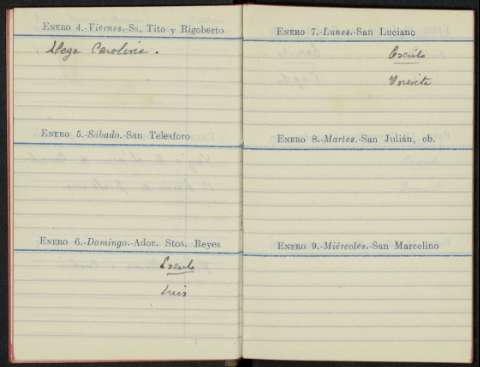 ENERO 4.-Viernes.-Ss. Tito y Rigoberto
Llega Carolina.
ENERO 5.-Sábado.-San Telesforo
ENERO 6.-Domingo.-Ador. Stos. Reyes
Escribo
Luis
ENERO 7.-Lunes.-San Luciano
Escribo
ENERO 8.-Martes.-San Julián, ob.
ENERO 9.-Miércoles.-San Marcelino